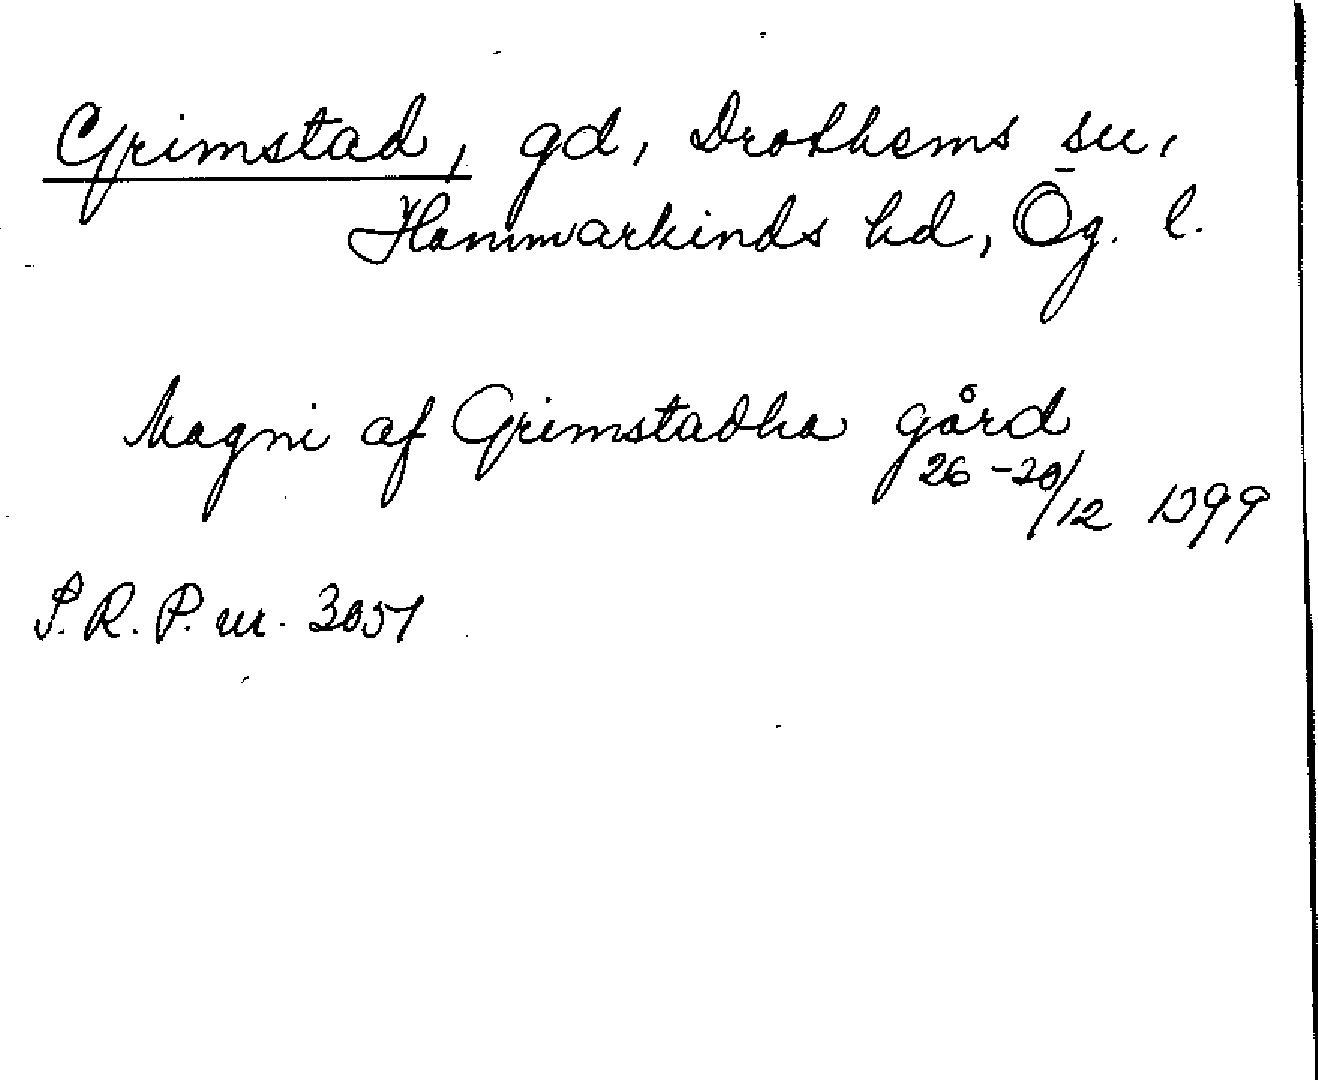 Grimstad, gd, Drothems sn,
Hammarkinds hd, Ög. l.
Magni af Grimstadha gård
26-30/12 1399
S.R.P. nr. 3051